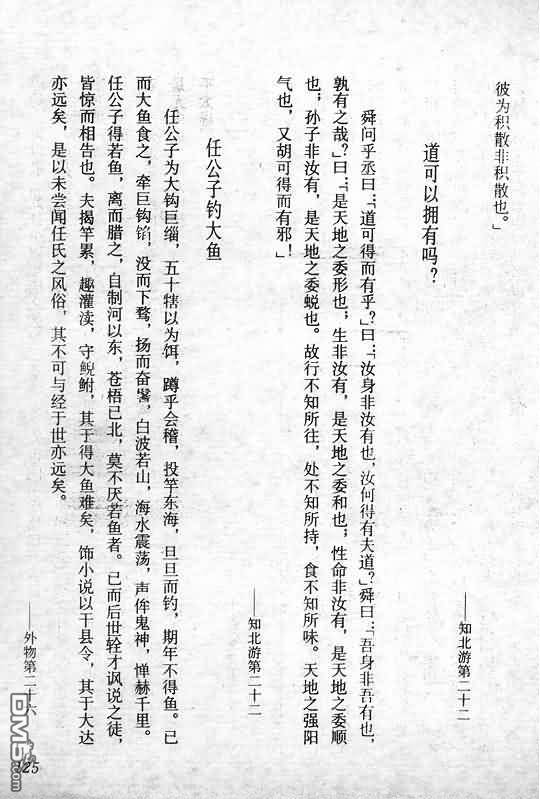 彼为积散非积散也。」
——知北游第二十二
道可以拥有吗？
舜问乎丞曰：「道可得而有乎？」曰：「汝身非汝有也，汝何得有夫道？」舜曰：「吾身非吾有也，
孰有之哉？」曰：「是天地之委形也；生非汝有，是天地之委和也；性命非汝有，是天地之委顺
也；孙子非汝有，是天地之委蜕也。故行不知所往，处不知所持，食不知所味。天地之强阳
气也，又胡可得而有邪！」
——知北游第二十二
任公子钓大鱼
任公子为大钩巨缁，五十犗以为饵，蹲乎会稽，投竿东海，旦旦而钓，期年不得鱼。已
而大鱼食之，牵巨钩，陷没而下骛，扬而奋鬐，白波若山，海水震荡，声侔鬼神，惮赫千里。
任公子得若鱼，离而腊之，自制河以东，苍梧已北，莫不厌若鱼者。已而后世辁才讽说之徒，
皆惊而相告也。夫揭竿累，趣灌渎，守鲵鲋，其于得大鱼难矣，饰小说以干县令，其于大达
亦远矣，是以未尝闻任氏之风俗，其不可与经于世亦远矣。
——外物第二十六
125
DM5.com